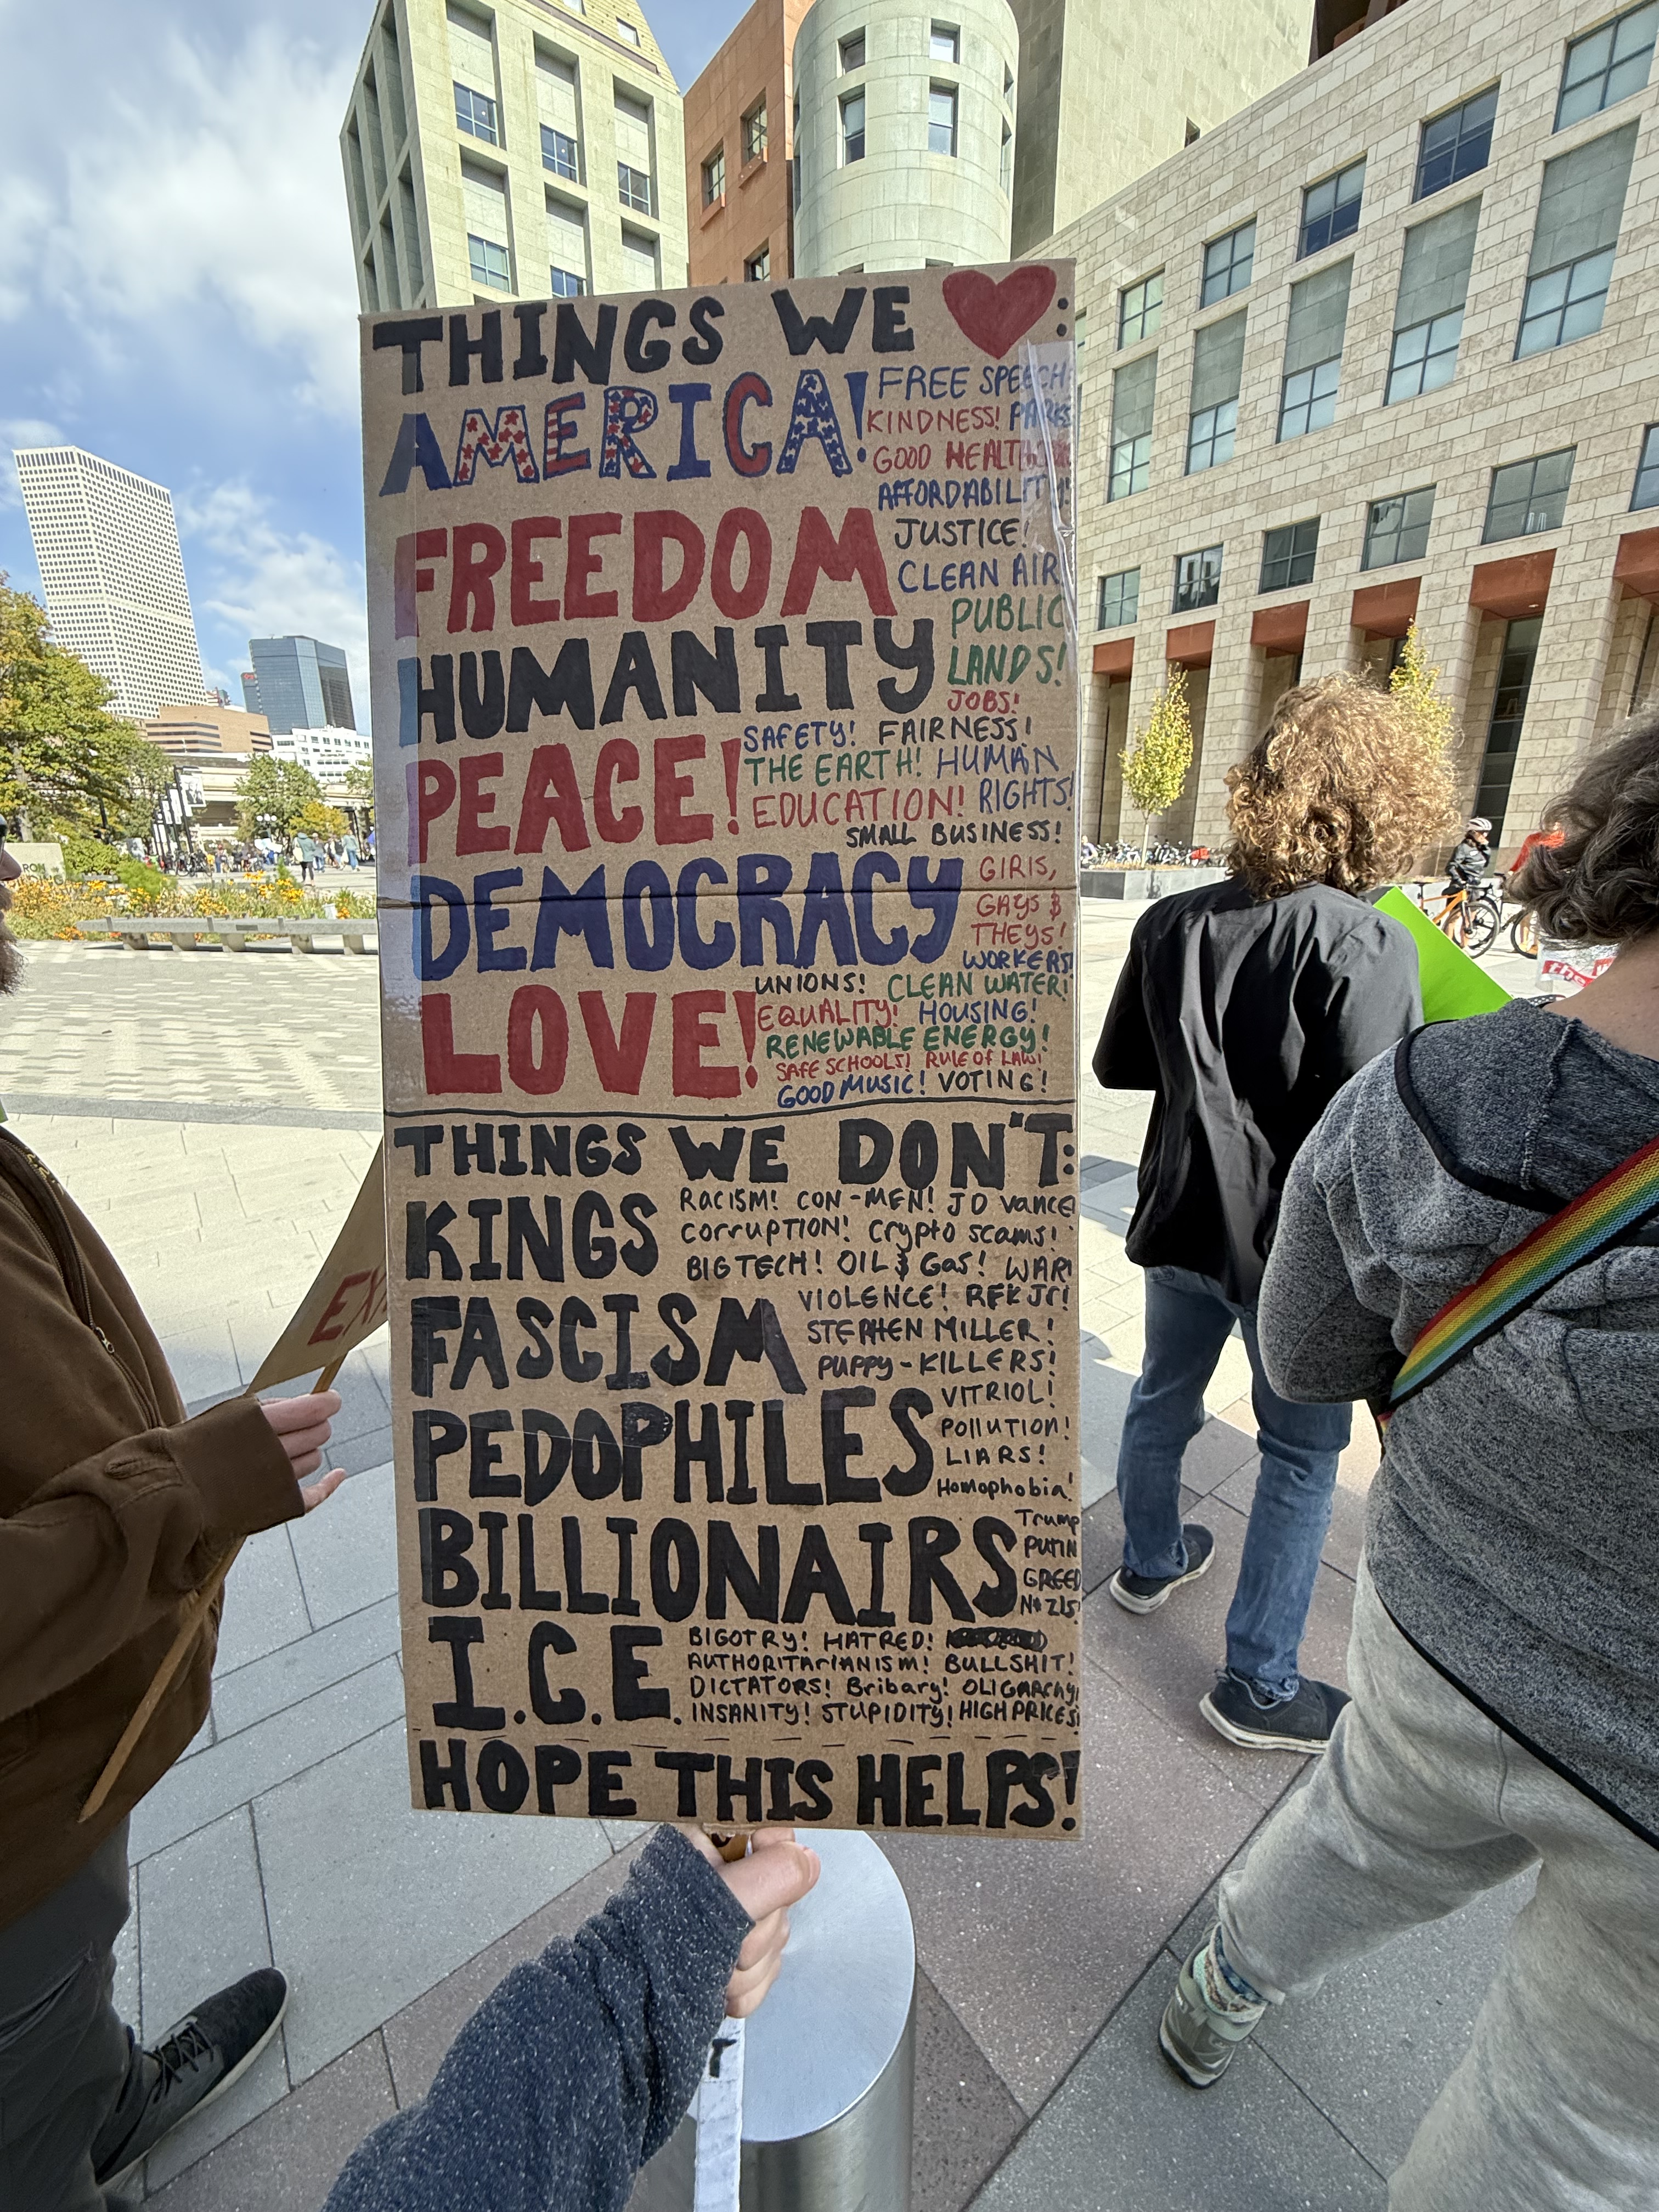 THINGS WE ❤:
AMERICA!
FREE SPEECH
KINDNESS! PARKS
GOOD HEALTH
AFFORDABILITY!
FREEDOM
JUSTICE!
CLEAN AIR
PUBLIC
LANDS!
HUMANITY
JOBS!
SAFETY! FAIRNESS!
PEACE!
THE EARTH! HUMAN
EDUCATION! RIGHTS!
SMALL BUSINESS!
DEMOCRACY
GIRLS,
GAYS $
THEYS!
WORKERS!
LOVE!
UNIONS! CLEAN WATER!
EQUALITY! HOUSING!
RENEWABLE ENERGY!
SAFE SCHOOLS! RULE OF LAW!
GOOD MUSIC! VOTING!
THINGS WE DON'T:
KINGS
RACISM! CON-MEN! JD Vance
CORRUPTION! Crypto scams!
BIG TECH! OIL $ Gas! WAR!
FASCISM
VIOLENCE! RFK Jr!
STEPHEN MILLER!
PUPPY-KILLERS!
PEDOPHILES
VITRIOL!
POLLUTION!
LIARS!
Homophobia!
BILLIONAIRS
Trump
PUTIN
GREED
I.C.E.
BIGOTRY! HATRED!
AUTHORITARIANISM! BULLSHIT!
DICTATORS! Bribary! OLIGARCHY!
INSANITY! STUPIDITY! HIGH PRICES!
HOPE THIS HELPS!